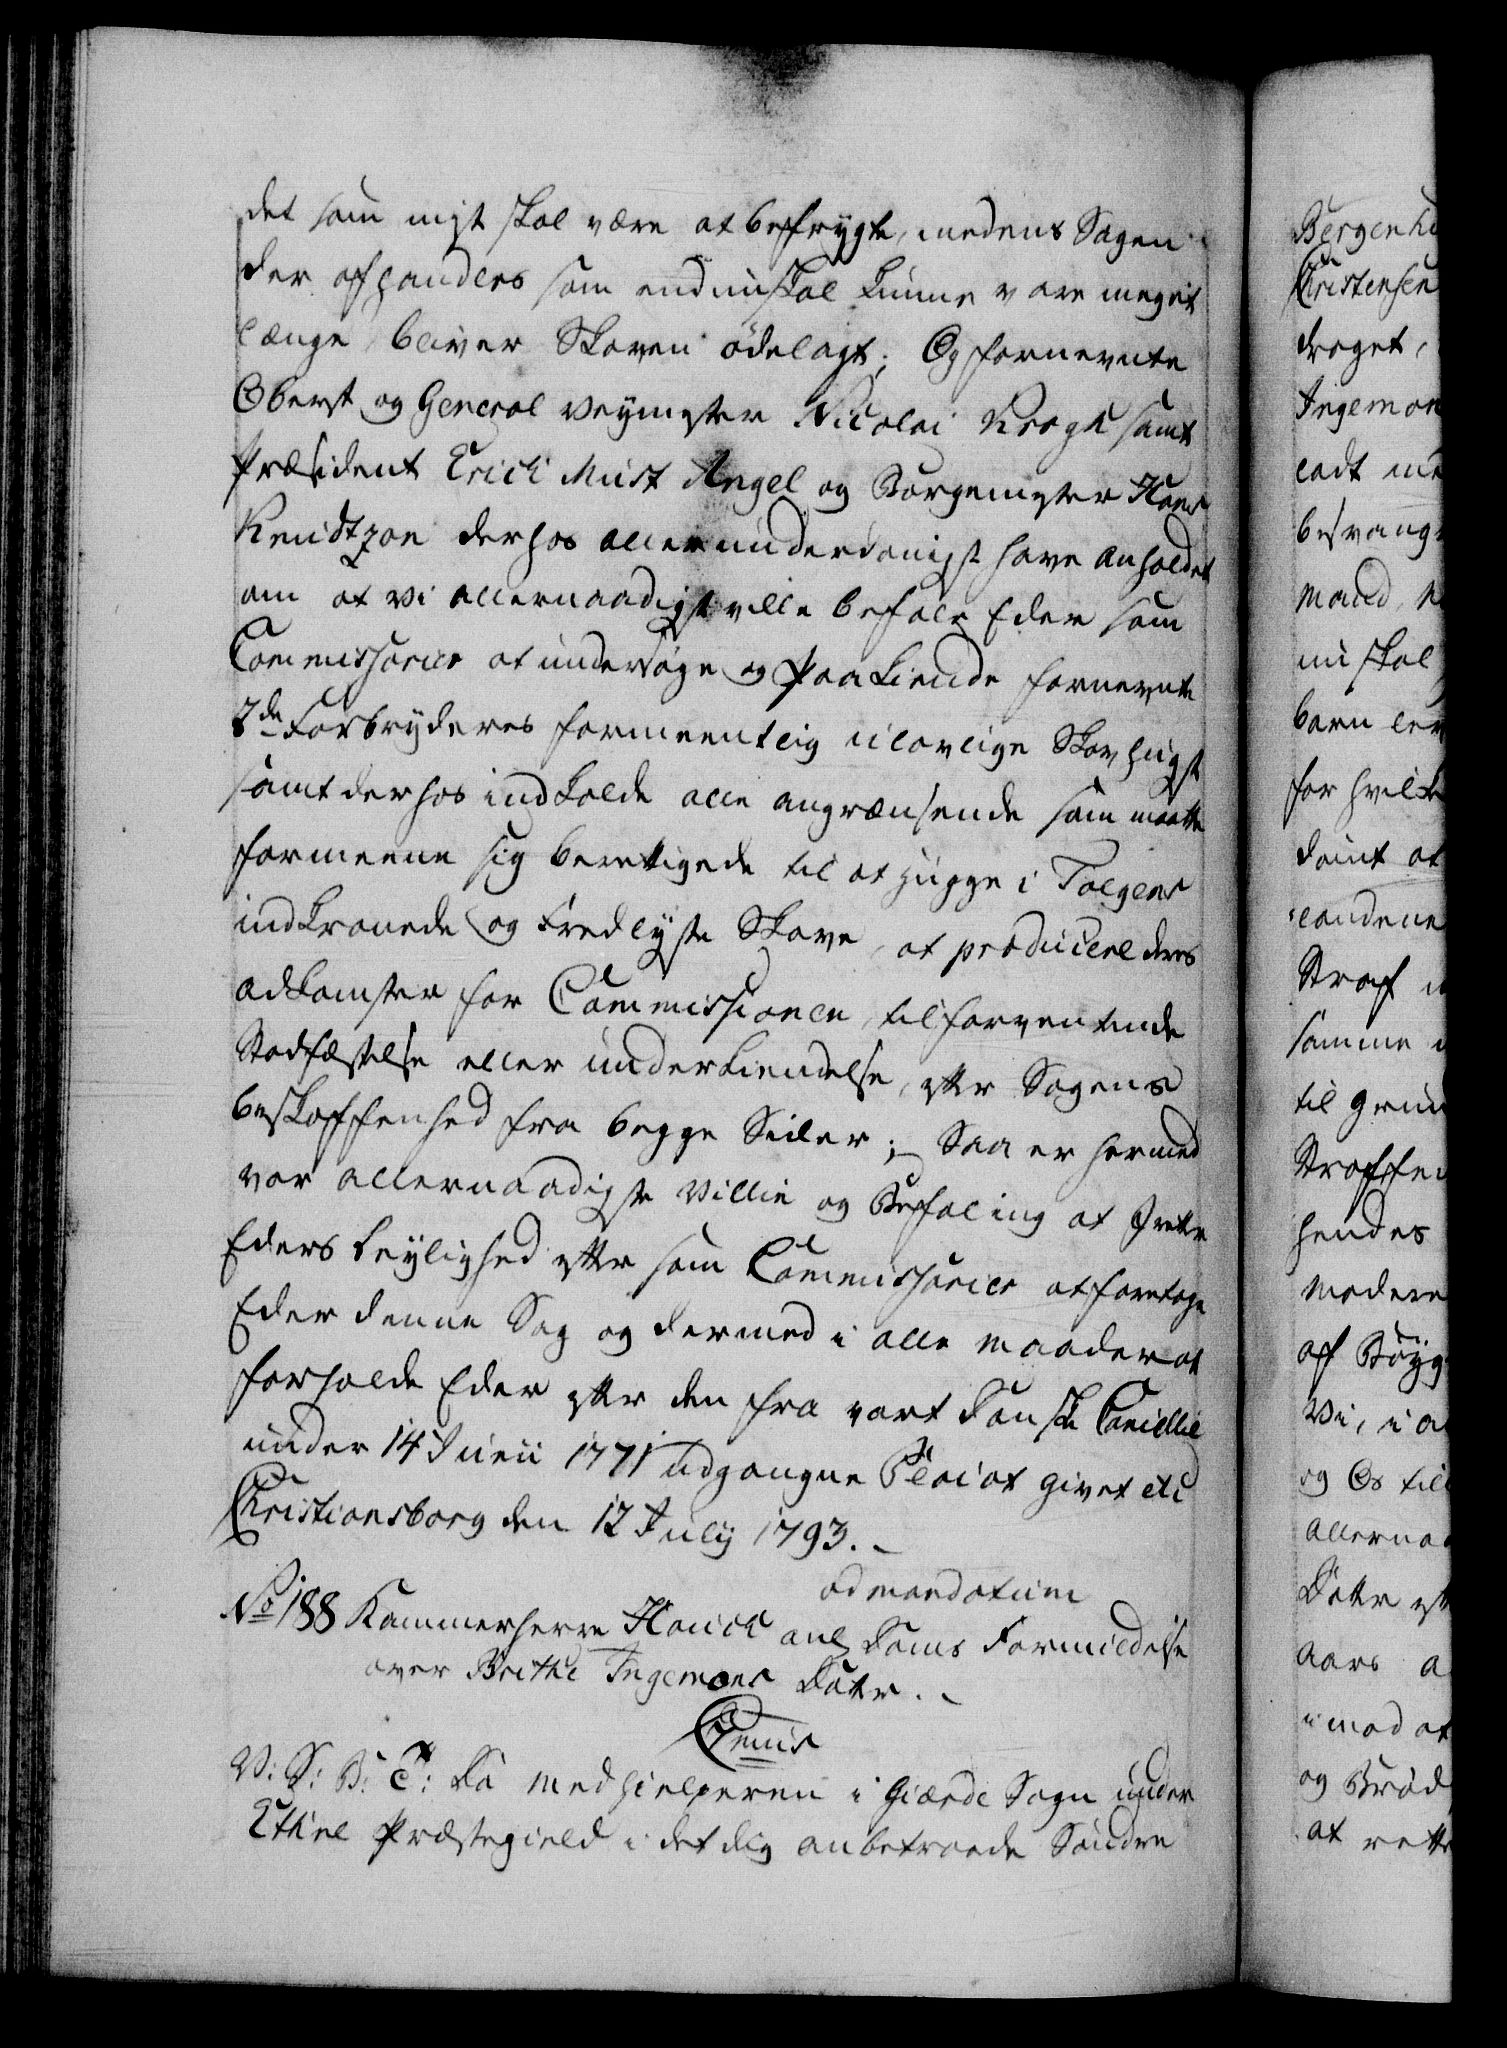 det som mist skal være at befrygte, medens Sagen
der afhandles som endnu skal kunne vare meget
længe, bliver Skoven ødelagt; Og fornevnte
Oberst og General Veymester Nicolai Krogh samt
Præsident Erich Must Angel og Borgemester Hans
Knudtzon derhos allerunderdanigst have anholdet
om at vi allernaadigst ville befale Eder som
Commissarier at undersøge og paakiende fornevnte
7de Forbryderes formeentlig ulovlige Skovhugst
samt derhos indkalde alle angrændsende som maatte
formeene sig berettigede til at hugge i Tolgens
indkronede og Fredlyste Skove, at producere deres
adkomster for Commissionen, til forventende
Stadfæstelse eller underkiendelse, efter Sagens
beskaffenhed fra begge Sider; Saa er hermed
vor allernaadigste Villie og Befaling at I rette
Eders Leylighed efter som Commissarier at foretage
Eder denne Sag og dermed i alle maader at
forholde Eder efter den fra vort danske Cancellie
under 14 Junii 1771 udgangne Placat givet etc
Christiansborg den 12 July 1793.
ad mandatum
No 188 Kammerherre Hauch anl Doms Formildelse
over Brithe Ingemans Datter.
C. 7mus
V: S: B: T: Da Medhielperen i Gierde Sogn under
Ethne Præstegield i det dig anbetroede Søndre
Bergenhu
Christensen
draget,
Ingeman
ladt me
besvang
mand,
nu skal
barn lev
for hvilke
dømt at
landene
Straf
samme
til grun
Straffen
hendes
modere
af Bøyg
Vi, i a
og Os till
Allernaa
Datter eft
aars a
imod at
og Brød
at rette